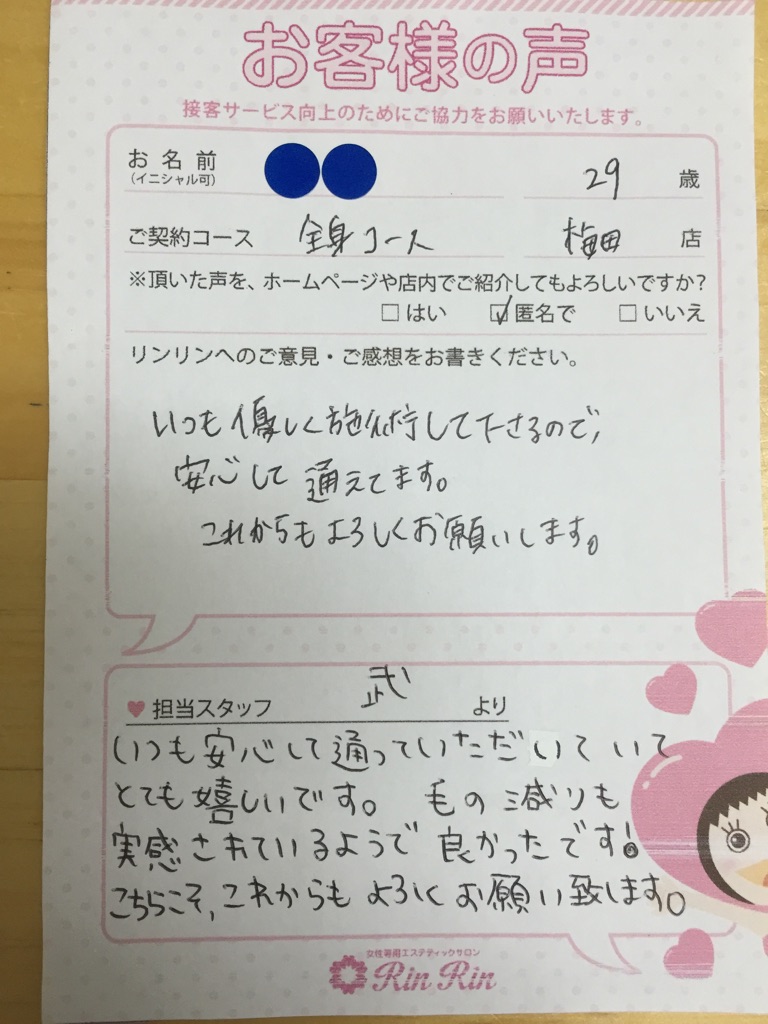 お客様の声
接客サービス向上のためにご協力をお願いいたします。
お名前 29 歳
(イニシャル可)
ご契約コース 全身コース 梅田 店
※頂いた声を、ホームページや店内でご紹介してもよろしいですか?
□はい ☑匿名で □いいえ
リンリンへのご意見・ご感想をお書きください。
いつも優しく施術して下さるので、
安心して通えてます。
これからもよろしくお願いします。
♥担当スタッフ 武 より
いつも安心して通っていただいていて
とても嬉しいです。毛の減りも
実感されているようで良かったです!
こちらこそ、これからもよろしくお願い致します。
女性専用エステティックサロン
Rin Rin